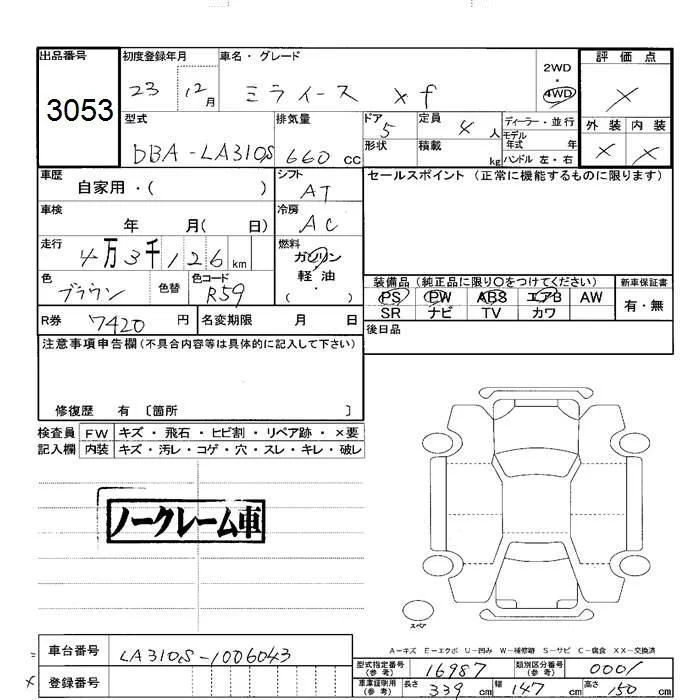 出品番号
3053
初度登録年月
23 12月
車名・グレード
ミライース Xf
2WD
・
4WD
評価点
×
外装 内装
× ×
型式
DBA-LA310S
排気量
660 cc
ドア
5
形状
定員
4 人
積載
kg
ディーラー・並行
モデル年式 年
ハンドル 左・右
車歴
自家用・( )
車検
年 月( 日)
走行
4万3千126km
色
ブラウン
色替
色コード
R59
シフト
AT
冷房
AC
燃料
ガソリン
軽・油
( ・ )
セールスポイント (正常に機能するものに限ります)
装備品 (純正品に限り○をつけてください)
PS PW ABS エアB AW
SR ナビ TV カワ
新車保証書
有・無
R券 7420 円
名変期限 月 日
後日品
注意事項申告欄(不具合内容等は具体的に記入して下さい)
修復歴 有 〔箇所 〕
検査員記入欄
FW キズ・飛石・ヒビ割・リペア跡・×要
内装 キズ・汚レ・コゲ・穴・スレ・キレ・破レ
ノークレーム車
スペア
A-キズ E-エクボ U-凹み W-補修跡 S-サビ C-腐食 XX-交換済
車台番号 LA310S-1006043
× 登録番号
型式指定番号(参考) 16987
類別区分番号(参考) 0001
車庫証明用(参考) 長さ 339 cm 幅 147 cm 高さ 150 cm